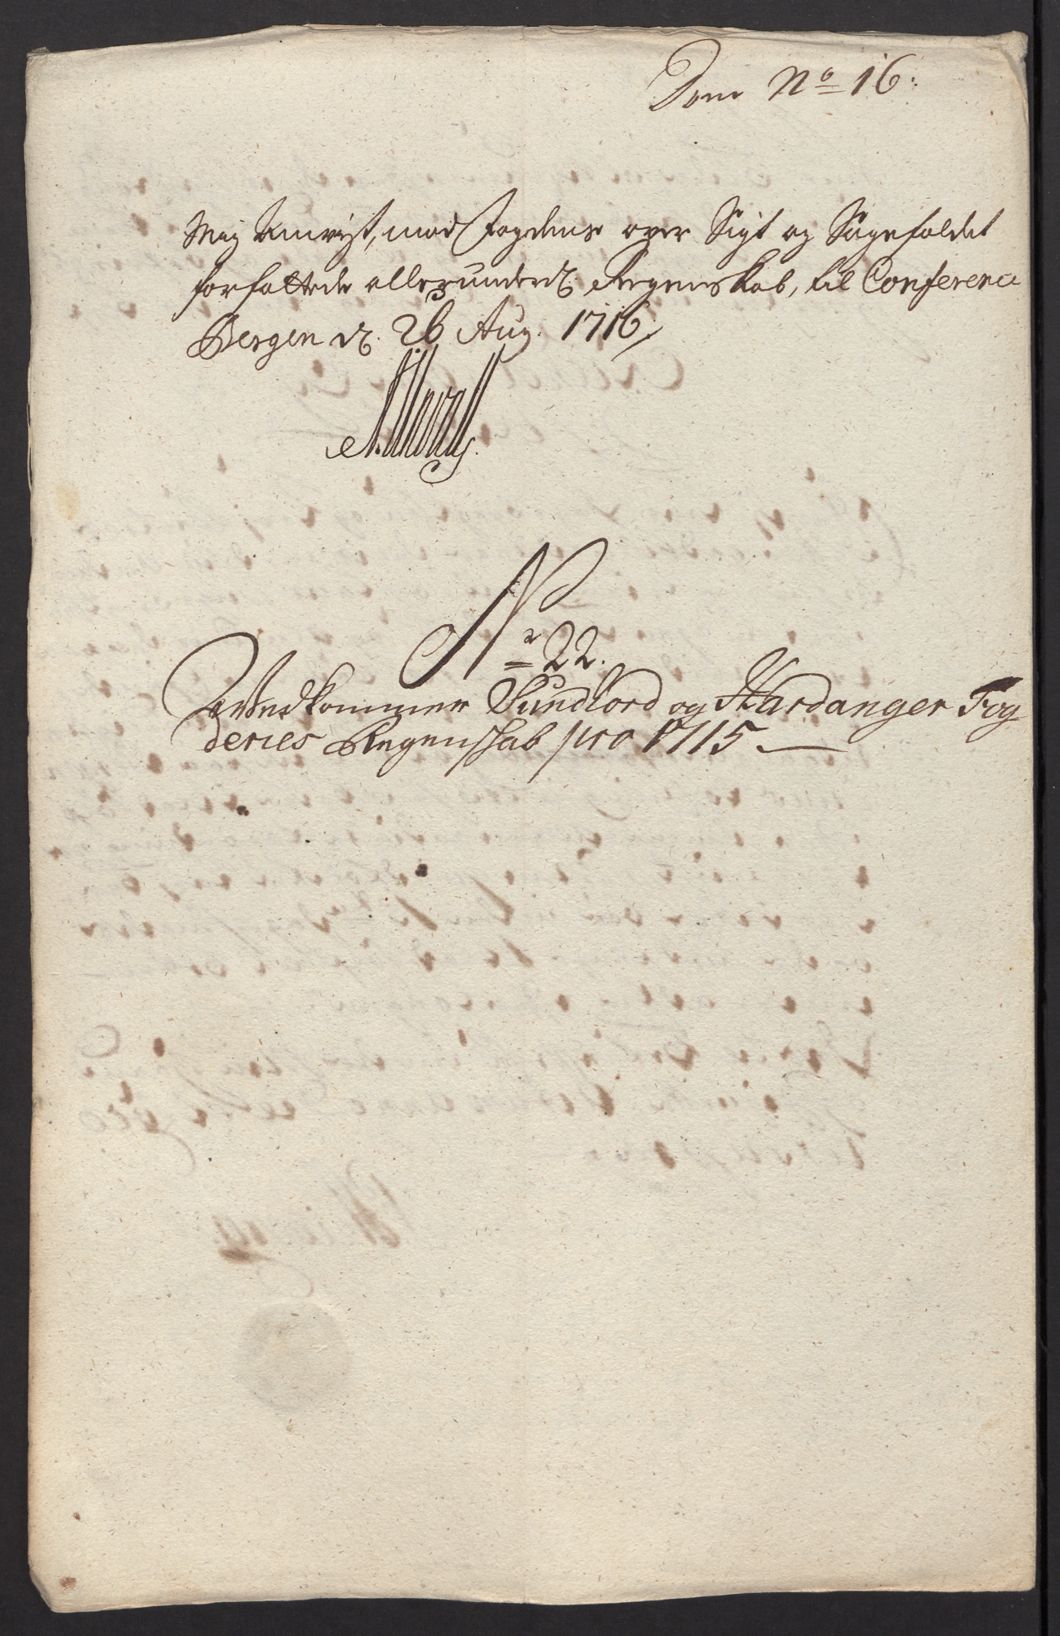 No 16.
Mig Anvist, mod Fogdens over Sigt og Sagefaldet
forfattede allerunderd: Regenskab, til Conference
Bergen d: 26 Aug. 1716
Nr 22.
Vedkommer Sundhord og Hardanger Fog
deries Regenskab pro 1715